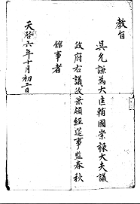 教旨
吳允謙爲大匡輔國崇祿大夫議
政府右議政兼領經筵事監春秋
館事者
天啓六年十月初二日